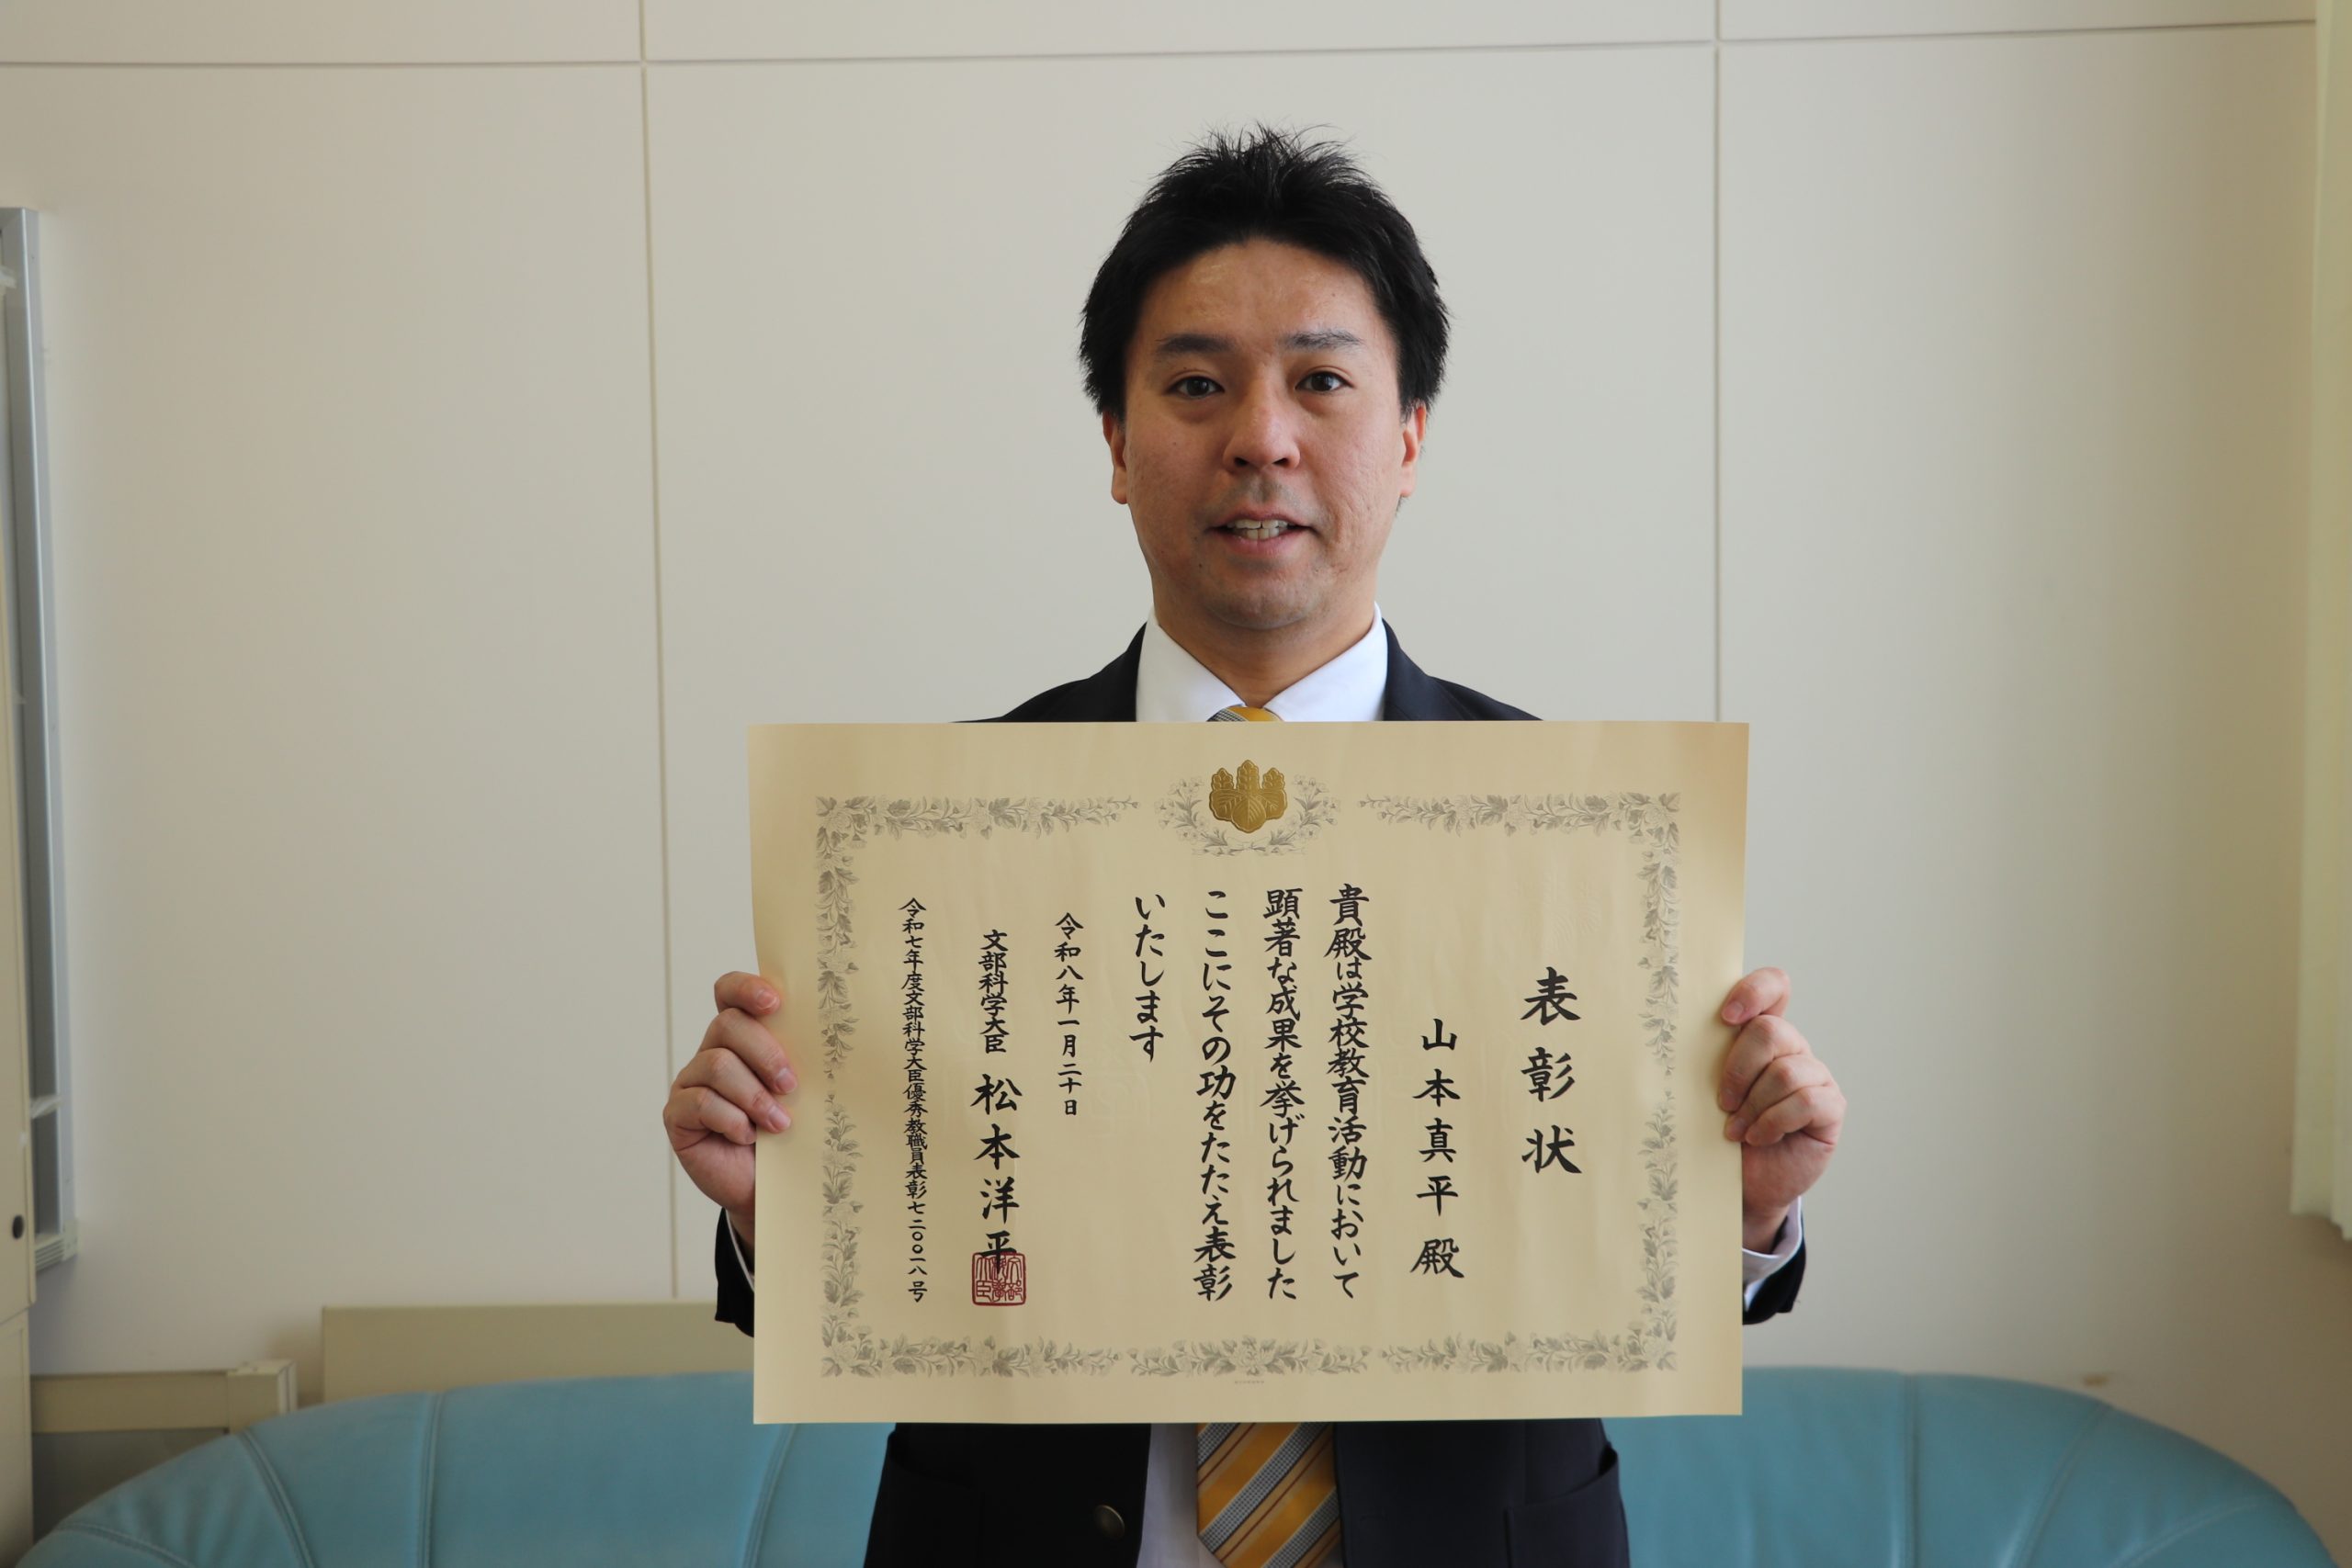 表彰状
山本真平殿
貴殿は学校教育活動において
顕著な成果を挙げられました
ここにその功をたたえ表彰
いたします
令和八年一月二十日
文部科学大臣 松本洋平
令和七年度文部科学大臣優秀教職員表彰七二〇〇一八号